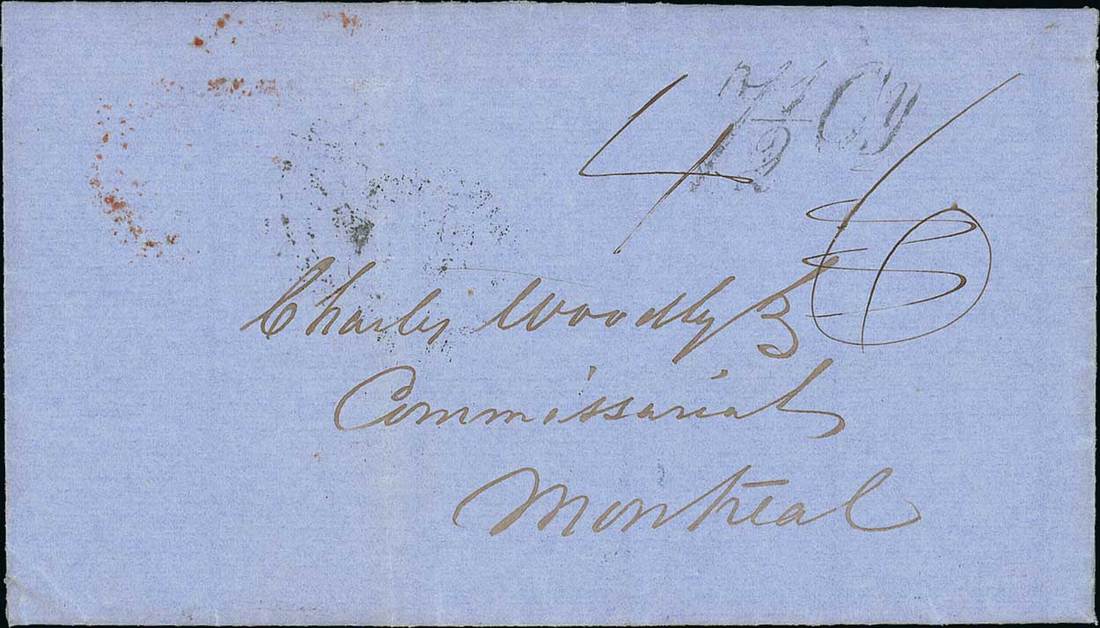 4/6
7½ Cy
Charles Woodly
Commissariat
Montreal